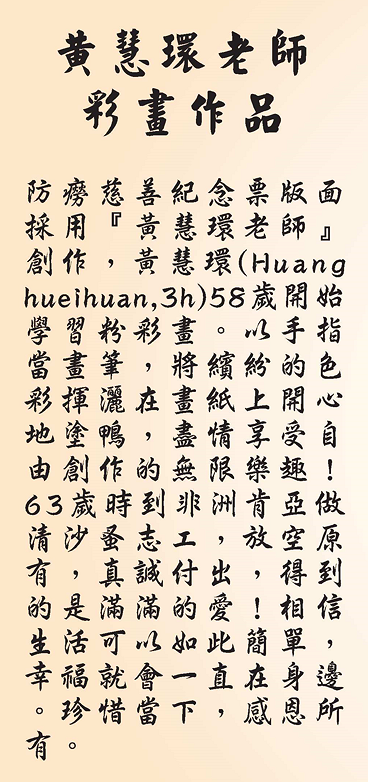 黃慧環老師
彩畫作品
防癆慈善紀念票版面
採用『黃慧環老師』
創作,黃慧環(Huang
hueihuan,3h)58歲開始
學習粉彩畫。以手指
當畫筆,將繽紛的色
彩揮灑在畫紙上開心
地塗鴨,盡情享受自
由創作的無限樂趣!
63歲時到非洲肯亞做
清沙蚤志工,放空原
有,真誠付出,得到
的是滿滿的愛!相信
生活可以如此簡單,
幸福就會一直在身邊
。珍惜當下,感恩所
有。